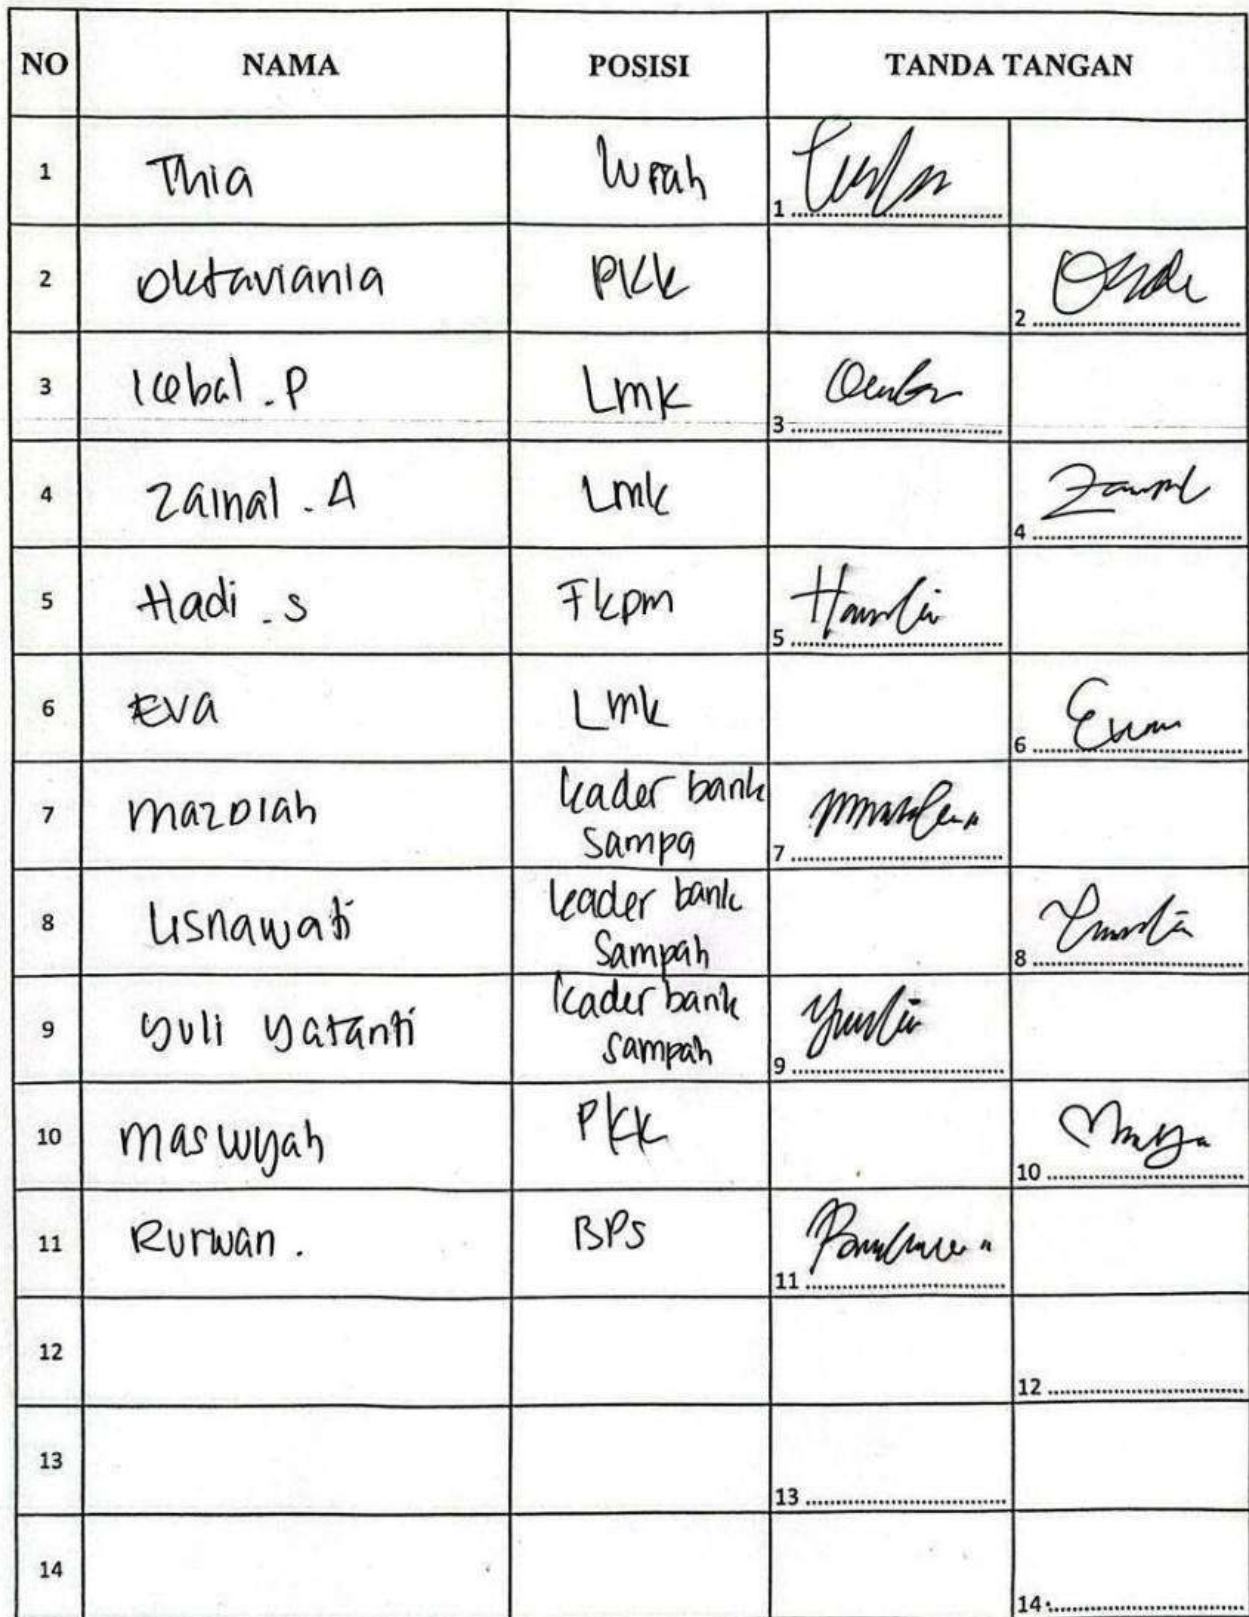 NO NAMA POSISI TANDA TANGAN
1 Thia Lurah 1
2 Oktaviania PKK 2
3 Icebal . P Lmk 3
4 Zainal . A Lmk 4
5 Hadi . S Fkpm 5
6 EVA Lmk 6
7 mazDiah kader bank
sampa 7
8 Lisnawati kader bank
Sampah 8
9 yuli yatanti kader bank
sampah 9
10 maswyah PKK 10
11 Rurwan . BPS 11
12 12
13 13
14 14